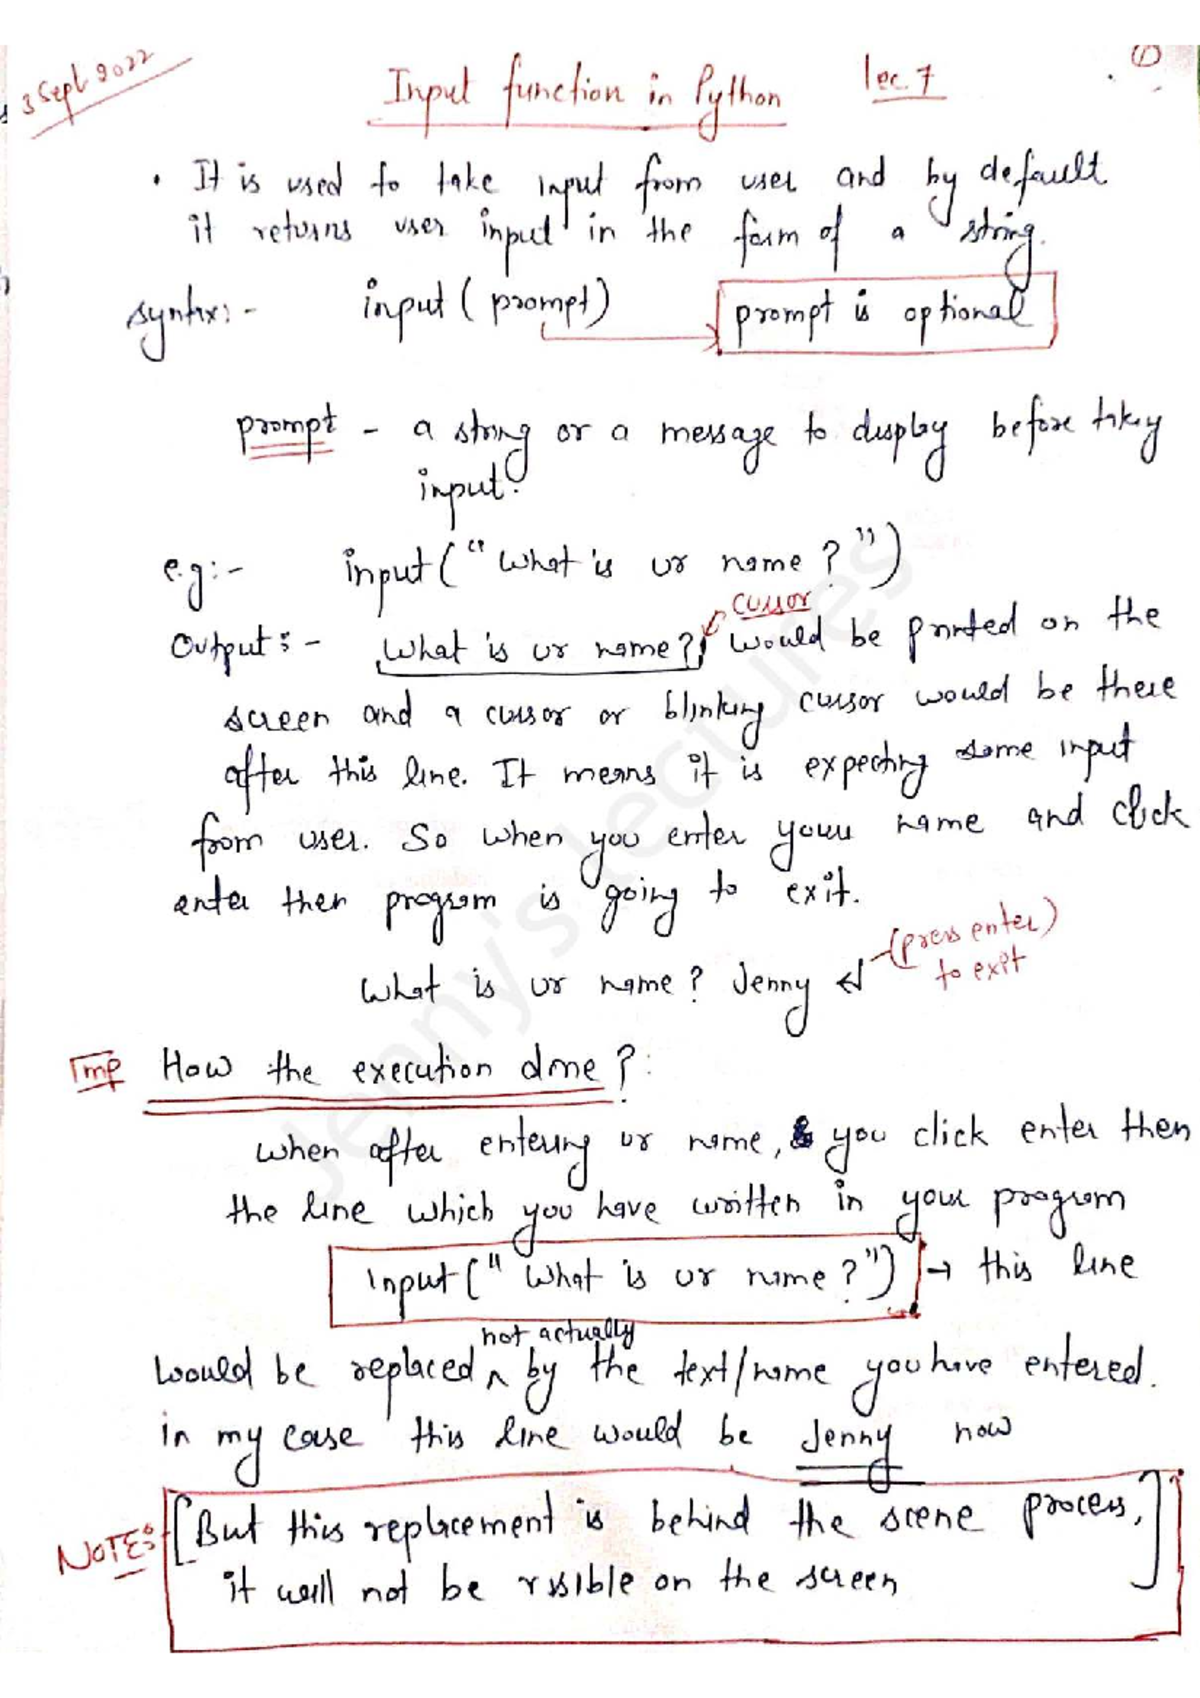 3 Sept 2022
Input function in Python lec. 7 ①
• It is used to take input from user and by default
it returns user input in the form of a string.
syntax:- input (prompt) prompt is optional
prompt - a string or a message to display before taking
input.
e.g:- input ("What is ur name ?")
cursor
Output:- What is ur name? would be printed on the
screen and a cursor or blinking cursor would be there
after this line. It means it is expecting some input
from user. So when you enter your name and click
enter then program is going to exit.
(press enter)
What is ur name? Jenny ↵ to exit
Imp How the execution done ?:
When after entering ur name, you click enter then
the line which you have written in your program
input (" What is ur name ?") → this line
not actually
would be replaced ^ by the text/name you have entered.
in my case this line would be Jenny now
NOTE: [But this replacement is behind the scene process,
it will not be visible on the screen]
Jenny's lectures